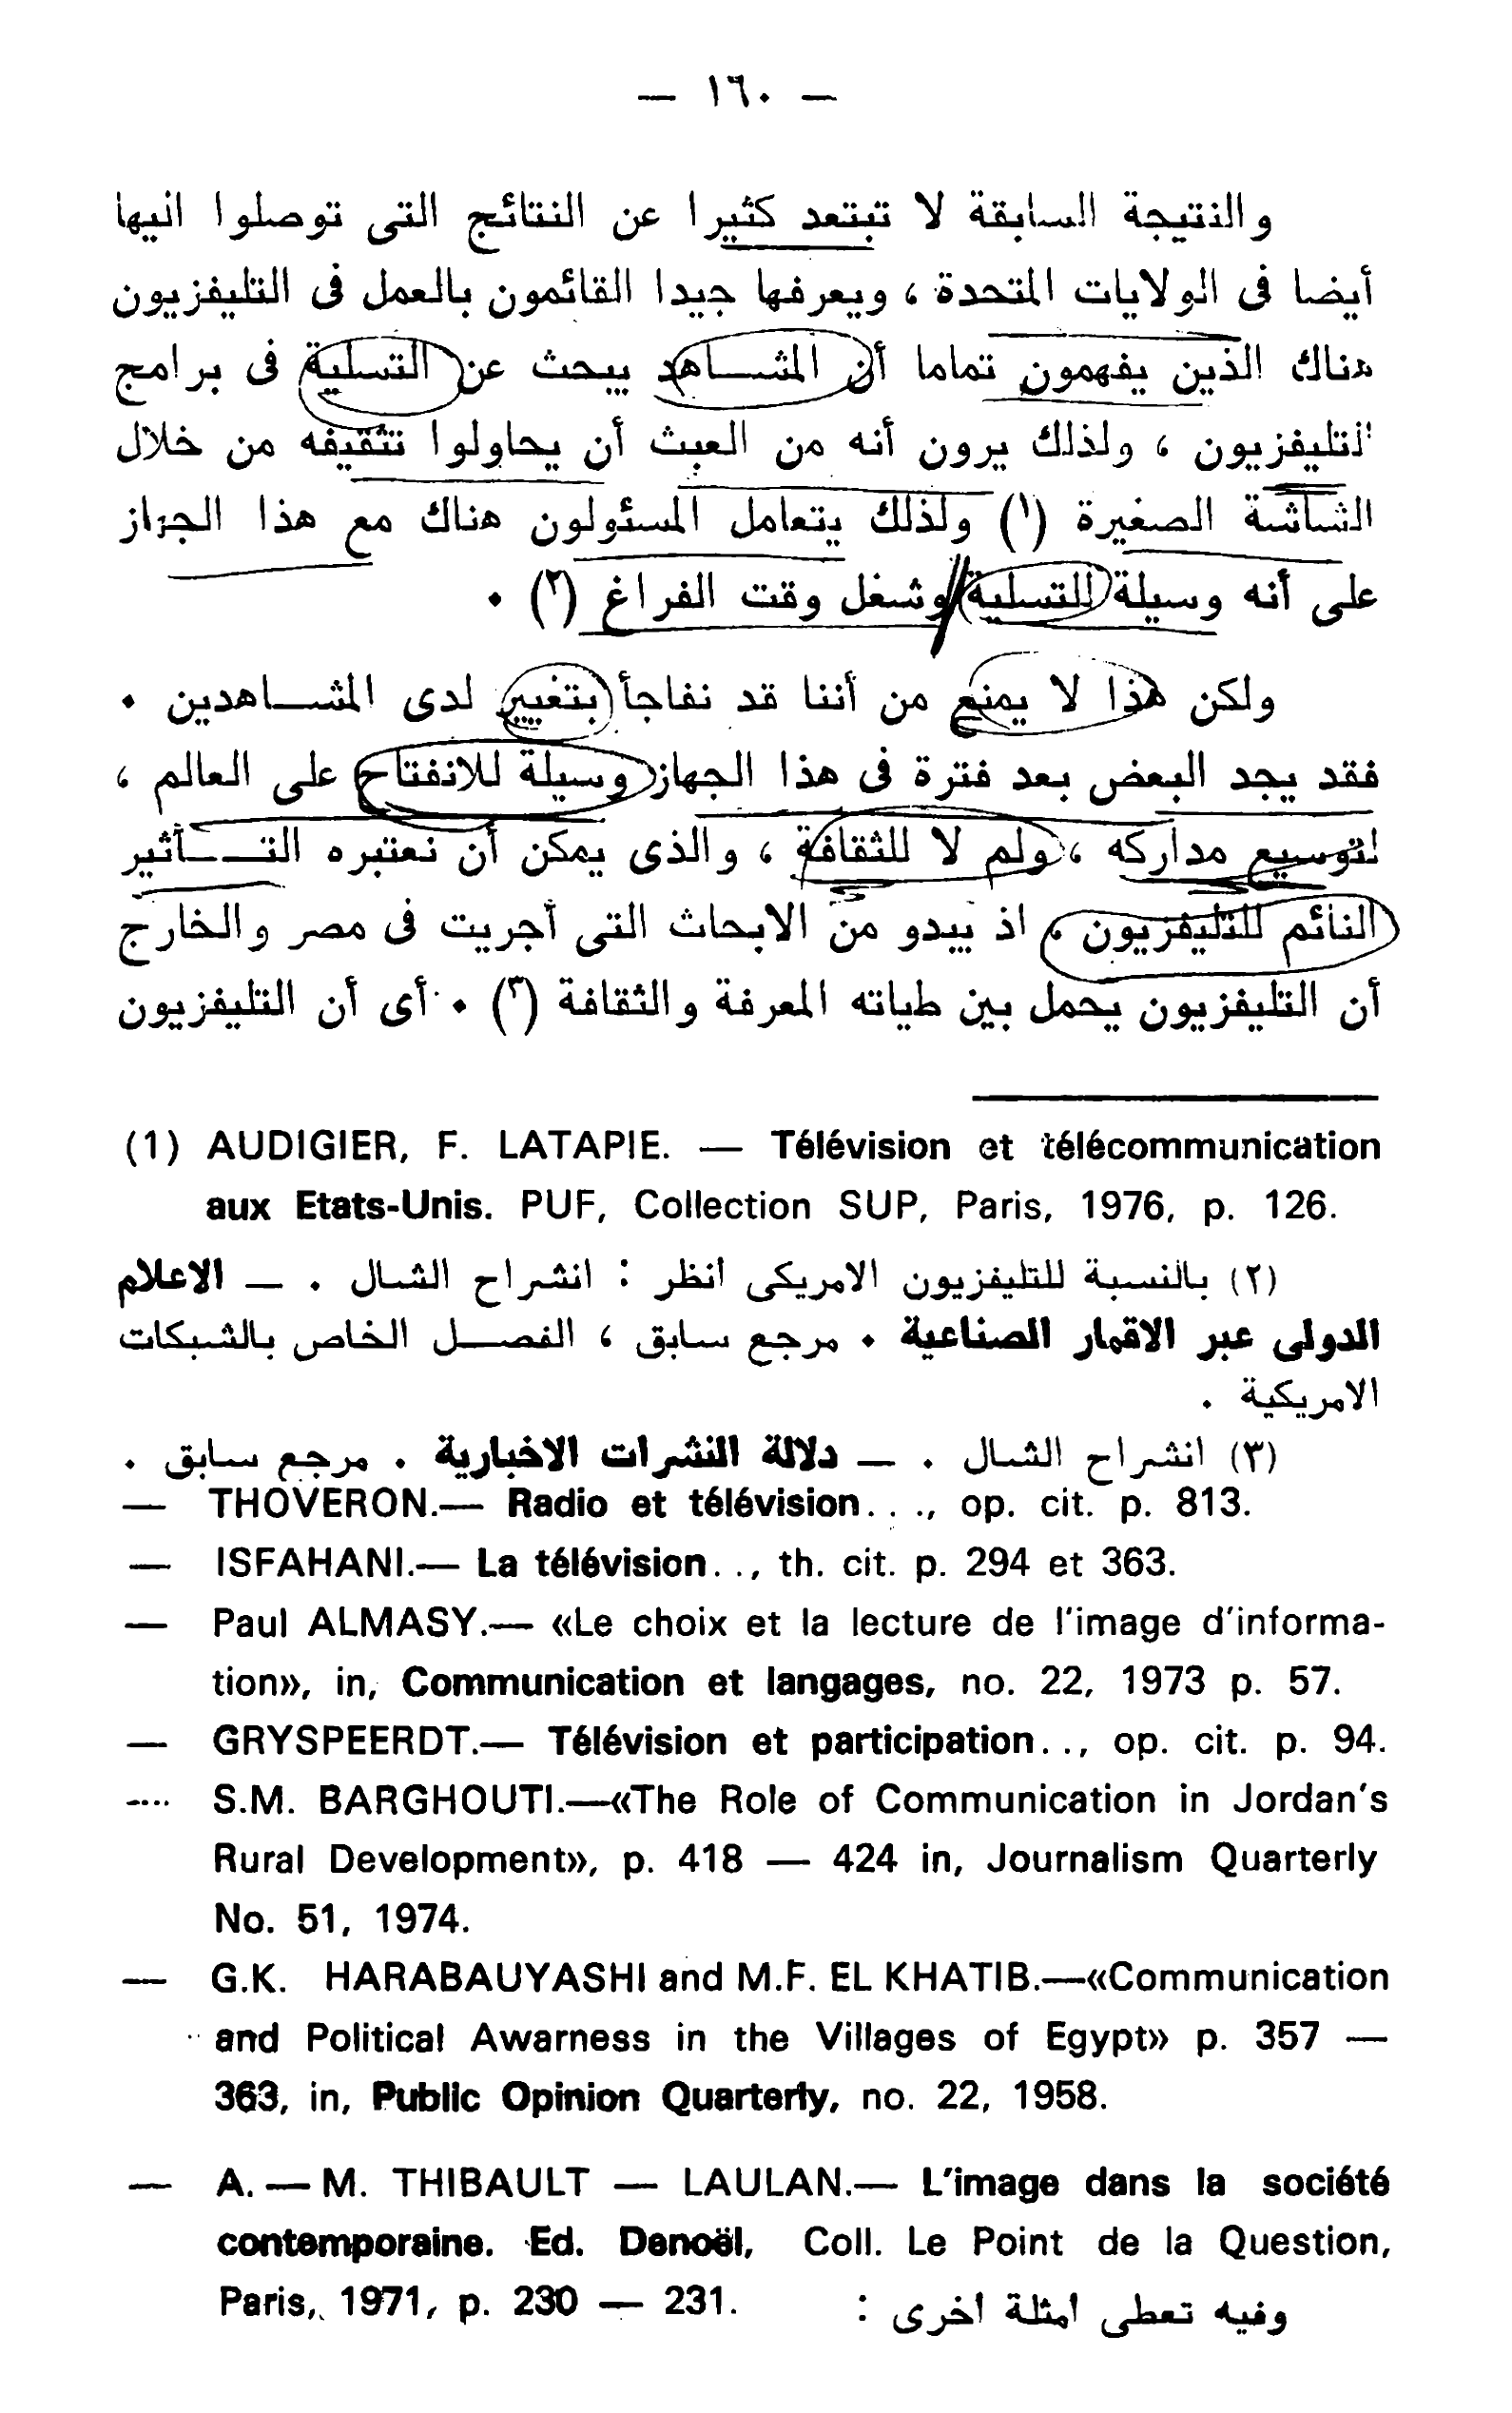 — ١٦٠ —
والنتيجة السابقة لا تبتعد كثيرا عن النتائج التى توصلوا اليها
أيضا فى الولايات المتحدة ، ويعرفها جيدا القائمون بالعمل فى التليفزيون
هناك الذين يفهمون تماما أن المشــاهد يبحث عن التسلية فى برامج
التليفزيون ، ولذلك يرون أنه من العبث أن يحاولوا تثقيفه من خلال
الشاشة الصغيرة (١) ولذلك يتعامل المسئولون هناك مع هذا الجهاز
على أنه وسيلة للتسلية وشغل وقت الفراغ (٢) .
ولكن هذا لا يمنع من أننا قد نفاجأ بتغيير لدى المشــاهدين .
فقد يجد البعض بعد فترة فى هذا الجهاز وسيلة للانفتاح على العالم ،
لتوسيع مداركه ، ولم لا للثقافة ، والذى يمكن أن نعتبره التــأثير
النائم للتليفزيون ، اذ يبدو من الابحاث التى أجريت فى مصر والخارج
أن التليفزيون يحمل بين طياته المعرفة والثقافة (٣) . أى أن التليفزيون
(1) AUDIGIER, F. LATAPIE. — Télévision et télécommunication
aux Etats-Unis. PUF, Collection SUP, Paris, 1976, p. 126.
(٢) بالنسبة للتليفزيون الامريكى انظر : انشراح الشال . — الاعلام
الدولى عبر الاقمار الصناعية . مرجع سابق ، الفصــل الخاص بالشبكات
الامريكية .
(٣) انشراح الشال . — دلالة النشرات الاخبارية . مرجع سابق .
— THOVERON.— Radio et télévision. . ., op. cit. p. 813.
— ISFAHANI.— La télévision. . ., th. cit. p. 294 et 363.
— Paul ALMASY.— «Le choix et la lecture de l'image d'informa-
tion», in, Communication et langages, no. 22, 1973 p. 57.
— GRYSPEERDT.— Télévision et participation. . ., op. cit. p. 94.
— S.M. BARGHOUTI.—«The Role of Communication in Jordan's
Rural Development», p. 418 — 424 in, Journalism Quarterly
No. 51, 1974.
— G.K. HARABAUYASHI and M.F. EL KHATIB.—«Communication
and Political Awarness in the Villages of Egypt» p. 357 —
363, in, Public Opinion Quarterly, no. 22, 1958.
— A. — M. THIBAULT — LAULAN.— L'image dans la société
contemporaine. Ed. Denoël, Coll. Le Point de la Question,
Paris, 1971, p. 230 — 231. وفيه تعطى امثلة اخرى :